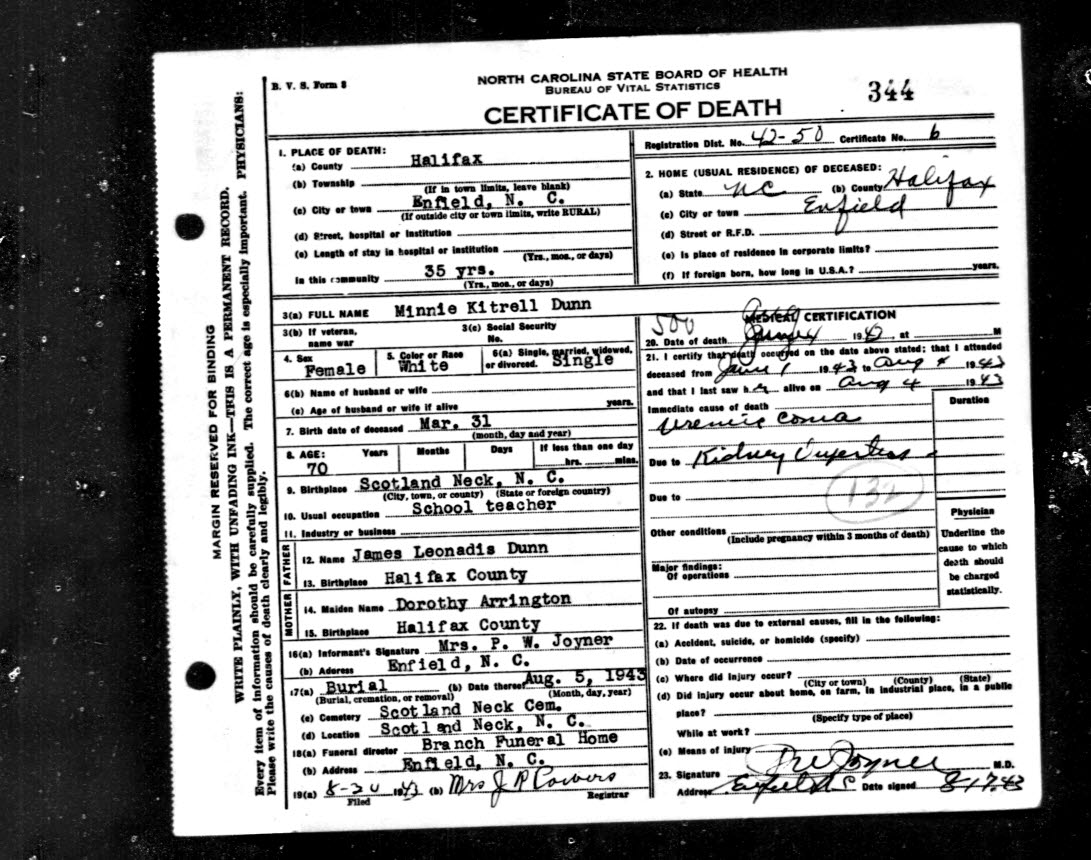 B. V. S. Form 8
NORTH CAROLINA STATE BOARD OF HEALTH
BUREAU OF VITAL STATISTICS
CERTIFICATE OF DEATH
344
Registration Dist. No. 42-50 Certificate No. 6
MARGIN RESERVED FOR BINDING
WRITE PLAINLY, WITH UNFADING INK—THIS IS A PERMANENT RECORD.
Every item of information should be carefully supplied. The correct age is especially important. PHYSICIANS:
Please write the causes of death clearly and legibly.
1. PLACE OF DEATH:
(a) County Halifax
(b) Township
(If in town limits, leave blank)
(c) City or town Enfield, N. C.
(If outside city or town limits, write RURAL)
(d) Street, hospital or institution
(e) Length of stay in hospital or institution
(Yrs., mos., or days)
In this community 35 yrs.
(Yrs., mos., or days)
2. HOME (USUAL RESIDENCE) OF DECEASED:
(a) State NC (b) County Halifax
(c) City or town Enfield
(d) Street or R.F.D.
(e) Is place of residence in corporate limits?
(f) If foreign born, how long in U.S.A.? years.
3(a) FULL NAME Minnie Kitrell Dunn
3(b) If veteran, name war
3(c) Social Security No.
4. Sex Female
5. Color or Race White
6(a) Single, married, widowed, or divorced. Single
6(b) Name of husband or wife
(c) Age of husband or wife if alive years.
7. Birth date of deceased Mar. 31
(month, day and year)
8. AGE: Years Months Days If less than one day
70 hrs. mins.
9. Birthplace Scotland Neck, N. C.
(City, town, or county) (State or foreign country)
10. Usual occupation School teacher
11. Industry or business
FATHER
12. Name James Leonadis Dunn
13. Birthplace Halifax County
MOTHER
14. Maiden Name Dorothy Arrington
15. Birthplace Halifax County
16(a) Informant's Signature Mrs. P. W. Joyner
(b) Address Enfield, N. C.
17(a) Burial (b) Date thereof Aug. 5, 1943
(Burial, cremation, or removal) (Month, day, year)
(c) Cemetery Scotland Neck Cem.
(d) Location Scotland Neck, N. C.
18(a) Funeral director Branch Funeral Home
(b) Address Enfield, N. C.
19(a) 8-20 1943 (b) Mrs J P Powers
Filed Registrar
500
MEDICAL CERTIFICATION
20. Date of death 19 at M
21. I certify that death occurred on the date above stated; that I attended
deceased from 1943 to Aug 1943
and that I last saw h alive on Aug 4 1943
Immediate cause of death Duration
Uremic Coma
Due to Kidney
132
Due to
Other conditions
(Include pregnancy within 3 months of death)
Major findings:
Of operations
Of autopsy
Physician
Underline the cause to which death should be charged statistically.
22. If death was due to external causes, fill in the following:
(a) Accident, suicide, or homicide (specify)
(b) Date of occurrence
(c) Where did injury occur?
(City or town) (County) (State)
(d) Did injury occur about home, on farm, in industrial place, in a public
place?
(Specify type of place)
While at work?
(e) Means of injury
23. Signature Joyner M.D.
Address Enfield N C Date signed 8-17-43